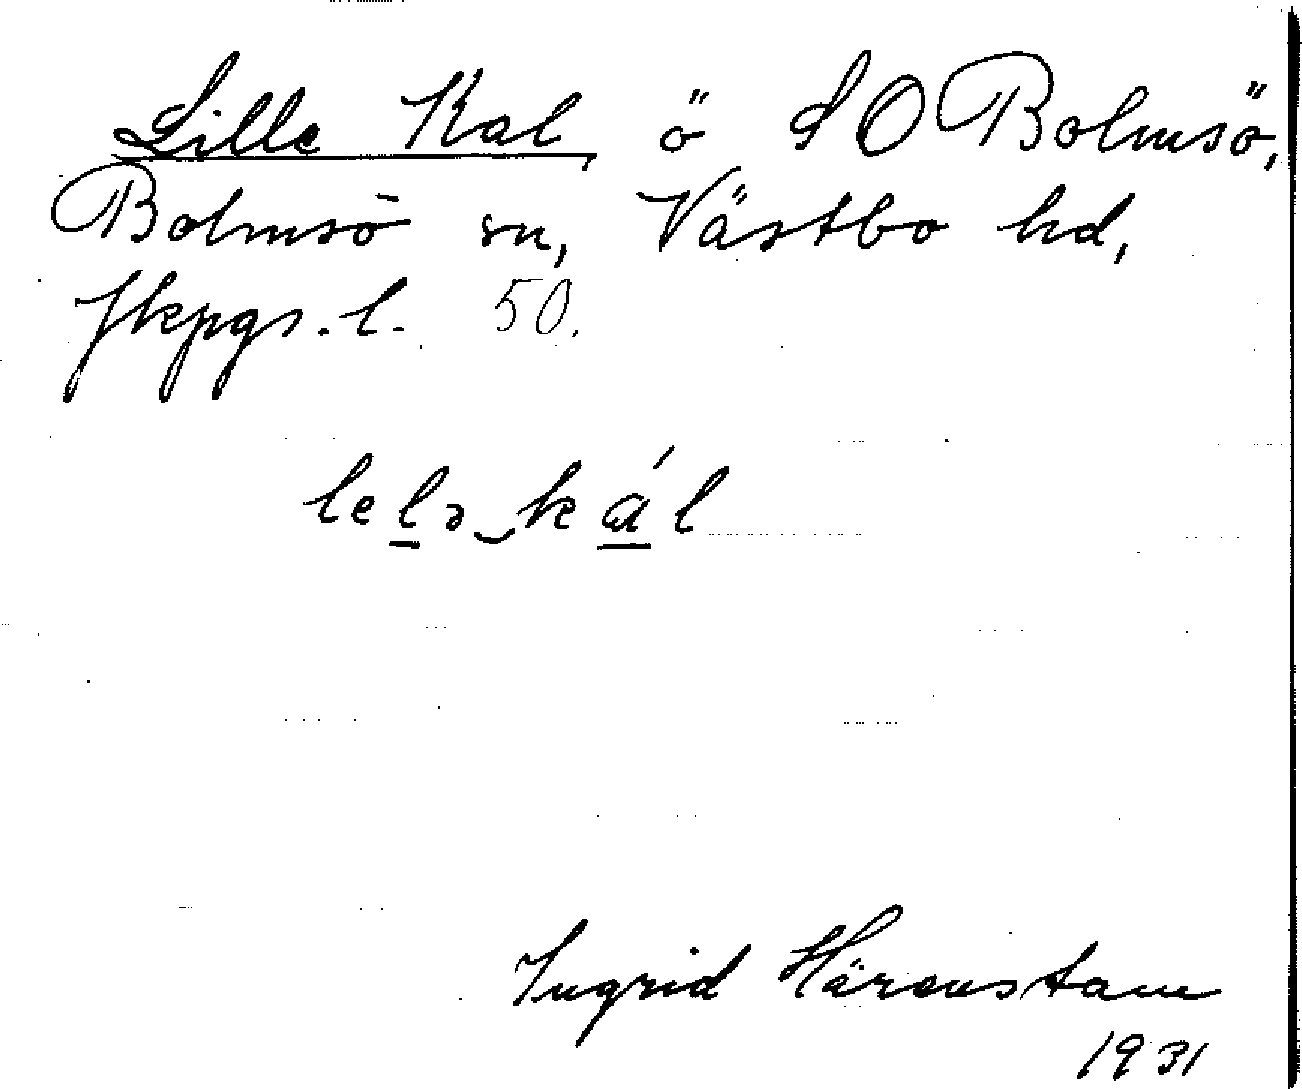 Lille Kal, ö SO Bolmsö,
Bolmsö sn, Västbo hd,
Jkpgs. l. 50.
lelə‿kál
Ingrid Härenstam
1931